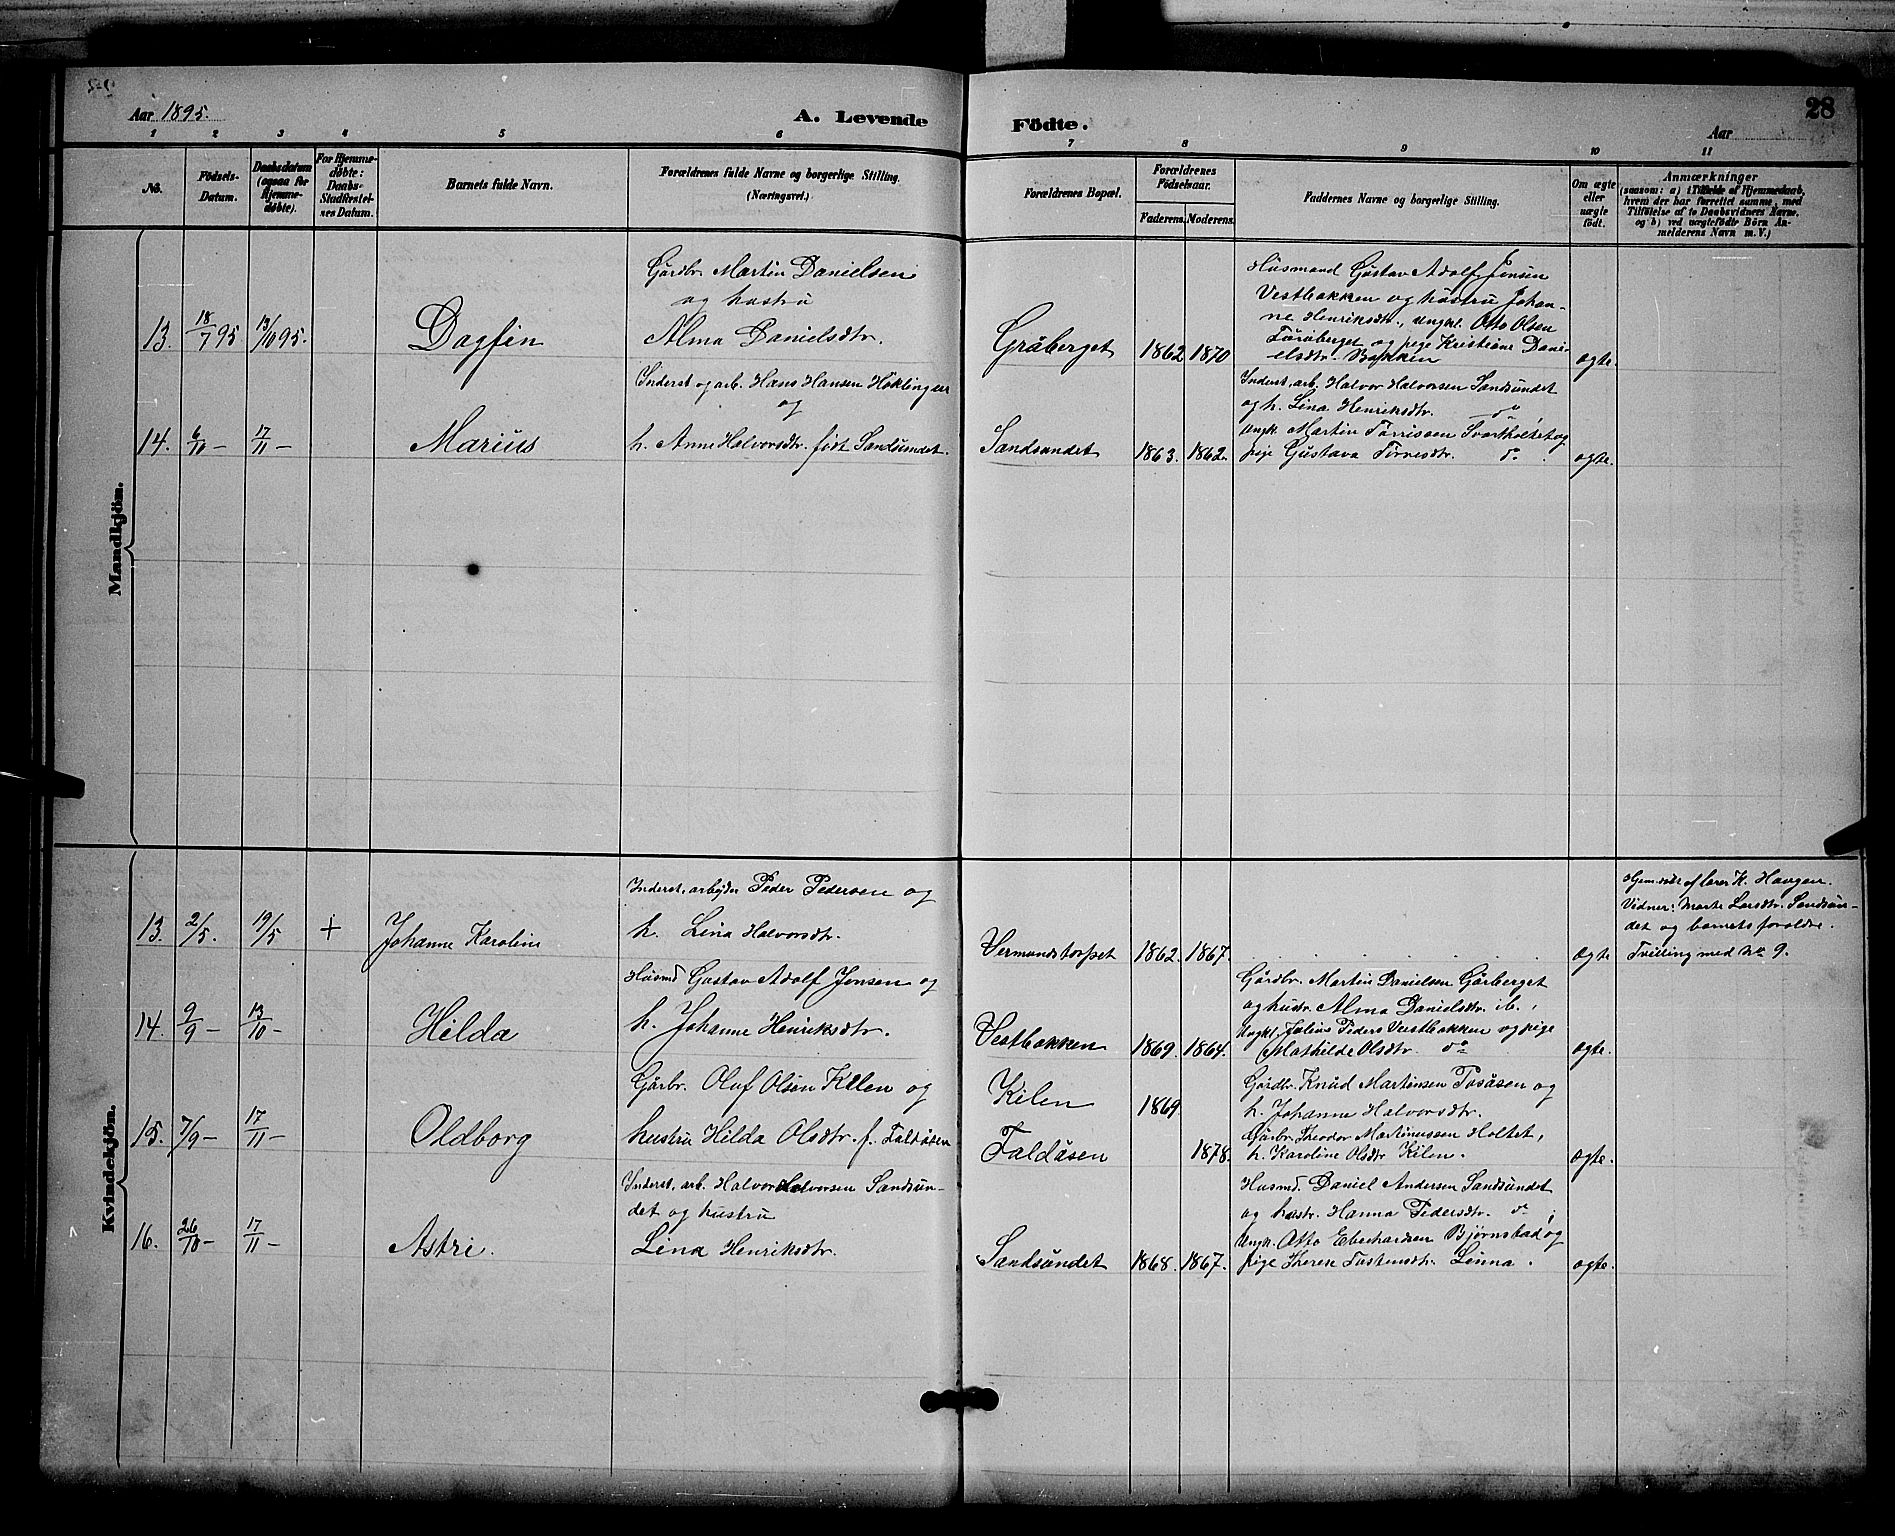 Aar 1895.
A. Levende
Födte.
28
Aar
1 2 3 4 5 6
7 8 9 10 11
No.
Födsels-
Datum.
Daabsdatum
(ogsaa for
Hjemme-
døbte).
For Hjemme-
døbte:
Daabs-
Stadfæstel-
sens Datum.
Barnets fulde Navn.
Forældrenes fulde Navne og borgerlige Stilling.
(Næringsvei.)
Forældrenes Bopæl.
Forældrenes
Födselsaar.
Faderens. Moderens.
Faddernes Navne og borgerlige Stilling.
Om ægte
eller
uægte
födt.
Anmærkninger
(saasom: a) i Tilfælde af Hjemmedaab,
hvem der har forrettet samme, med
Tilföielse af to Daabsvidners Navne,
og b) ved uægtefödte Börn An-
melderens Navn m. V.)
Mandkjön.
13. 18/7 95 13/10 95. Dagfin
Gårdbr. Martin Danielsen
og hustru
Alma Danielsdtr.
Gråberget 1862 1870
Husmand Gustav Adolf Jensen
Vestbakken og hustru Johan-
ne Henriksdtr., Ungk. Otto Olsen
og pige Kristiane Dani-
elsdtr. Bakken
ægte.
14. 6/10 – 17/11 – Marius
Inderst og arb. Hans Hansen
og
h. Anne Halvorsdtr. født Sandsundet.
Sandsundet 1863. 1862.
Inderst, arb. Halvor Halvorsen Sandsundet
og h. Lina Henriksdtr. do
Ungk. Martin Torrissen Svartholtet og
pige Gustava do.
ægte.
Kvindekjön.
13. 2/5. 19/5 + Johanne Karoline
Inderst, arbejder Peder Pedersen og
h. Lina Halvorsdtr.
Vermundstorpet 1862. 1867.
ægte
Hjemdøbt af lærer K. Haugen.
Vidner: Marte Larsdtr. Sandsun-
det og barnets forældre.
Tvilling med No 9.
14. 9/9 – 13/10 – Hilda
Husmd Gustav Adolf Jensen og
h. Johanne Henriksdtr.
Vestbakken 1869. 1864.
Gårdbr. Martin Danielsen Gårberget
og hustr. Alma Danielsdtr. ib.,
Ungk. Julius Peders Vestbakken og pige
Mathilde Olsdtr. do
ægte.
15. 7/9 – 17/11 – Oldborg
Gårbr. Oluf Olsen Kilen og
hustru Hilda Olsdtr. f. Faldåsen
Kilen 1869
Faldåsen 1878.
Gårdbr. Knud Martinsen Tosåsen og
h. Johanne Halvorsdtr.
Gårbr. Theodor Martinussen Holtet,
h. Karoline Olsdtr Kilen.
ægte.
16. 26/10 – 17/11 – Astri.
Inderst, arb. Halvor Halvorsen Sandsun-
det og hustru
Lina Henriksdtr.
Sandsundet 1868. 1867.
Husmd. Daniel Andersen Sandsundet
og hustr. Hanna Pedersdtr. do;
Ungk. Otto Eberhardsen Bjørnstad og
pige Therese Linna.
ægte.